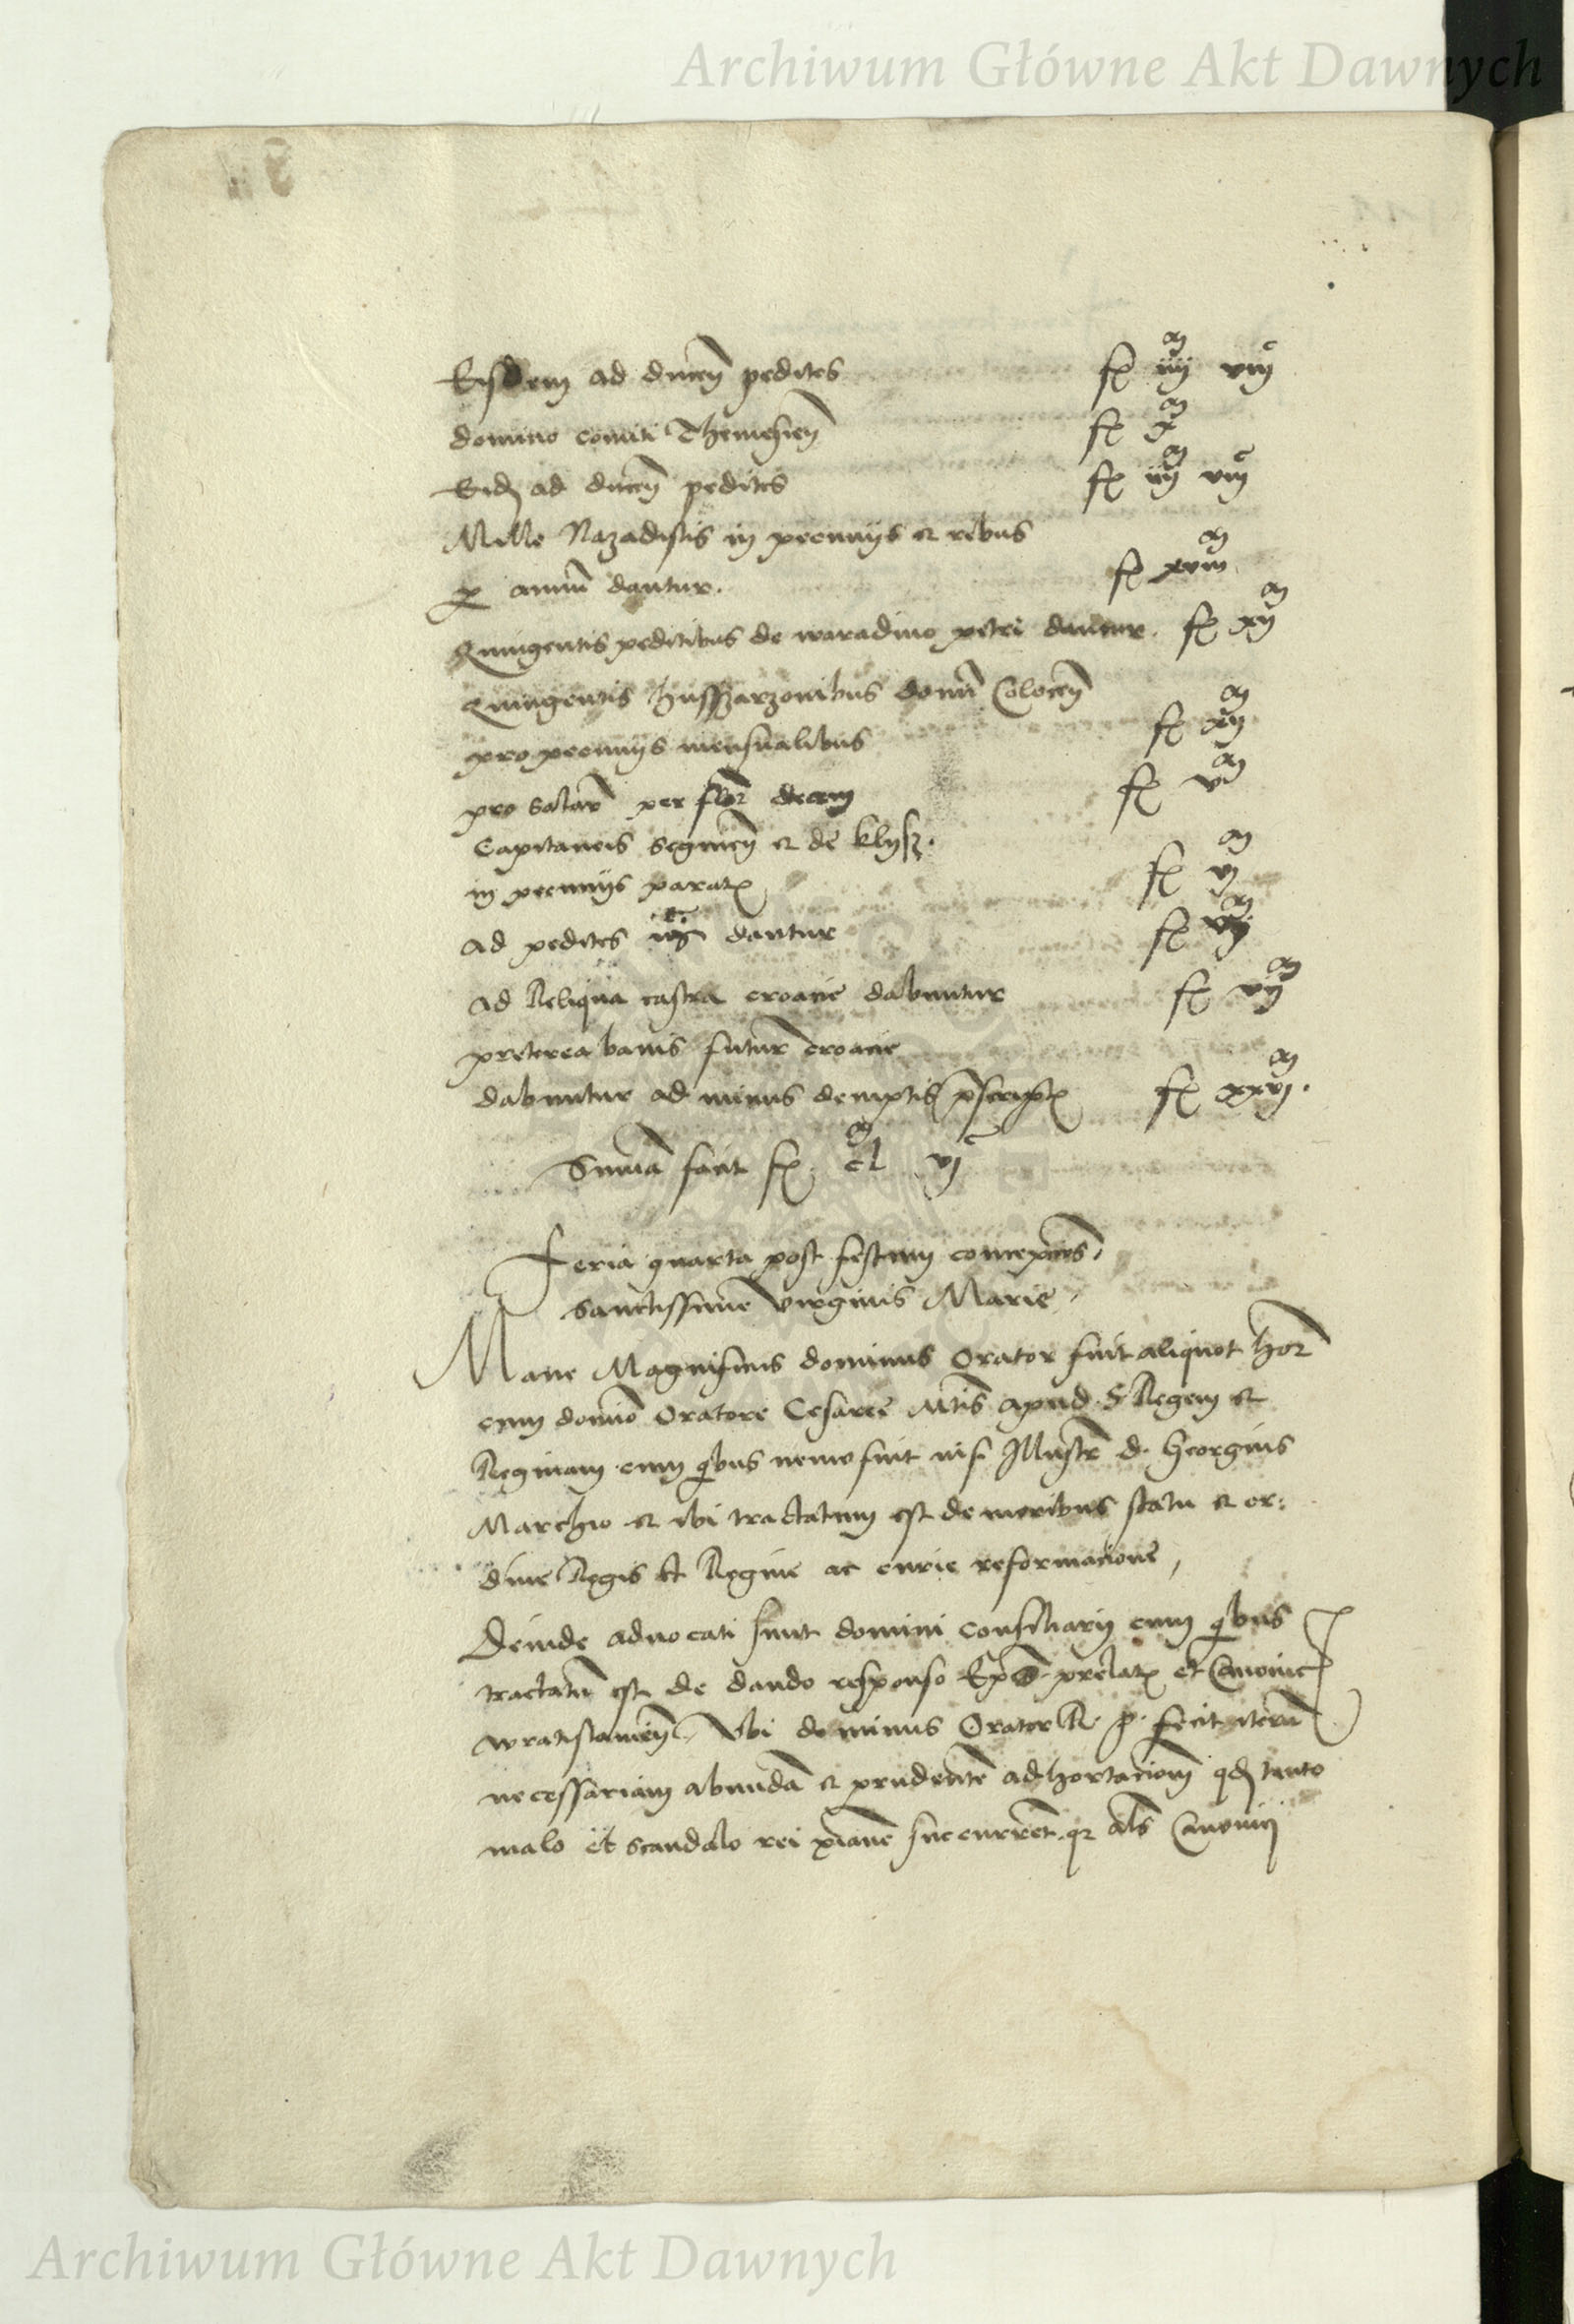 Archiwum Główne Akt Dawnych
Eisdem ad ducen pedites fl iiij m viij c
domino comiti Themesien fl x m
Eidem ad ducen pedites fl iiij m viij c
Mille Nazadistis in pecunijs et rebus
per annum dantur. fl xviij m
Quingentis peditibus de waradino petri dantur. fl xij m
Quingentis husszarzonibus domini Colocen
pro pecunijs mensualibus fl xij m
pro salar per flor decem fl v m
Capitaneis Segnien et de klysz.
in pecunijs parat fl vj m
ad pedites dantur fl
ad Reliqua castra croacie dabuntur fl vij m
preterea banis futur croacie
dabuntur ad minus demptis prescript fl xxvj m.
Summa facit fl cl m vj c
Feria quarta post festum concepcionis
sanctissime virginis Marie,
Mane Magnificus dominus Orator fuit aliquot hor
cum domino Oratore Cesaree Mtis apud S. Regem et
Reginam. cum quibus nemo fuit nisi Illustr d. Georgius
Marchio et ibi tractatum est de moribus statu et or:
dine Regis et Regine ac curie reformacione,
Deinde aduocati sunt domini consiliarij cum quibus
tractatum est de dando responso Epo prelat et Canonic
wratislauien. Vbi dominus Orator R. p. fecit iterum
necessariam abundan et prudentem adhortacionem quod tanto
malo et scandalo rei xpiane succurreret. quia als Canonicj
Archiwum Główne Akt Dawnych